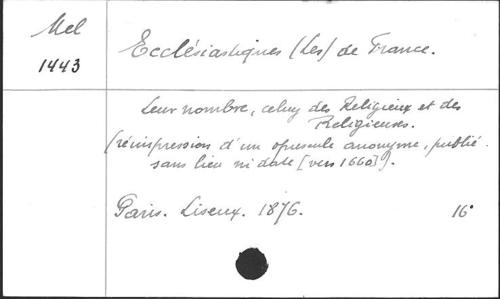 Mel
1443
Ecclésiastiques (Les) de France.
Leur nombre, celuy des Religieux et des
Religieuses.
(réimpression d'un opuscule anonyme, publié
sans lieu ni date [vers 1660]).
Paris. Liseux. 1876. 16°